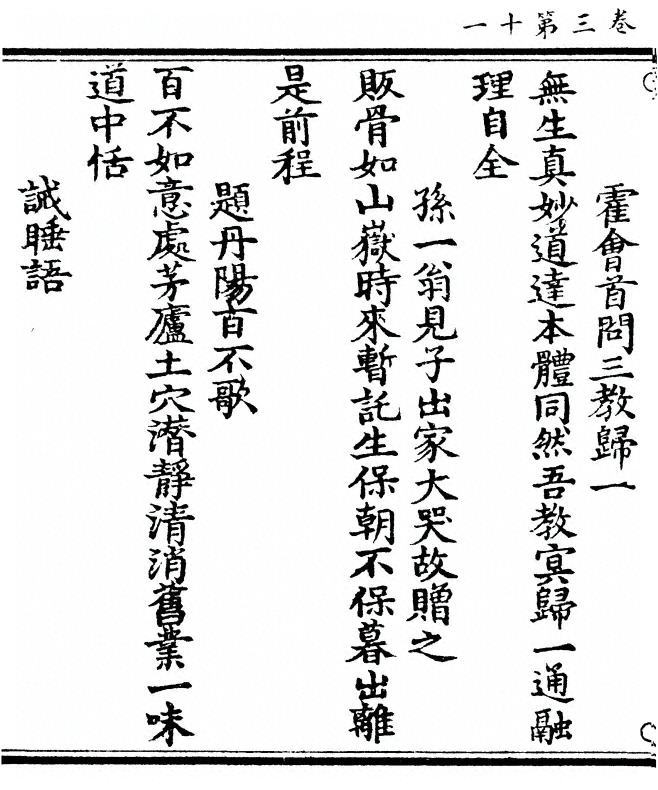 卷三第十一
霍會首問三教歸一
無生真妙道達本體同然吾教㝠歸一通融
理自全
孫一翁見子出家大哭故贈之
販骨如山嶽時來暫託生保朝不保暮出離
是前程
題丹陽百不歌
百不如意處茅廬土穴潜靜清消舊業一味
道中恬
誡睡語